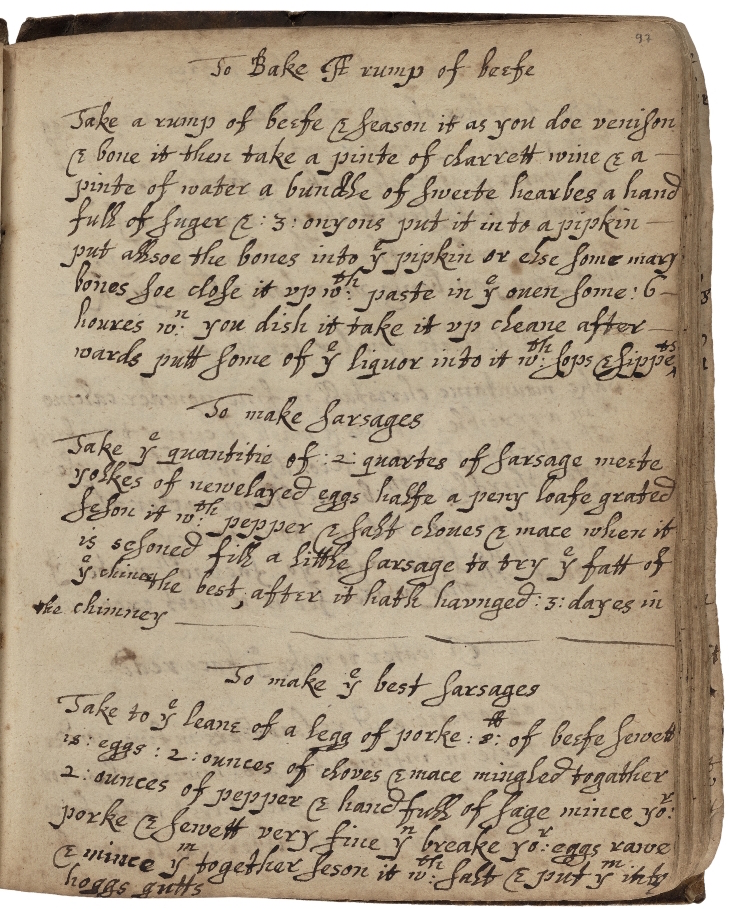 97
To Bake A rump of beefe
Take a rump of beefe & season it as you doe venison
& bone it then take a pinte of clarrett wine & a
pinte of water a bundle of sweete hearbes a hand
full of suger &: 3: onyons put it into a pipkin
put allsoe the bones into yᵉ pipkin or else some mary
bones soe close it vp wᵗʰ: paste in yᵉ ouen some: 6
houres wⁿ: you dish it take it vp cleane after
wards putt some of yᵉ liquor into it wᵗʰ: sops & sippᵗˢ
To make sarsages
Take yᵉ quantitie of :2: quartes of sarsage meete
yolkes of newelayed eggs halfe a peny loafe grated
seson it wᵗʰ: pepper & salt cloues & mace when it
is sesoned fill a little sarsage to try yᵉ fatt of
yᵉ chine the best, after it hath haunged :3: dayes in
the chimney
To make yᵉ best sarsages
Take to yᵉ leane of a legg of porke :8:ˡˡ of beefe sewett
18: eggs :2: ounces of cloves & mace mingled togather
2: ounces of pepper & handfull of sage mince yoʳ:
porke & sewett very fine yⁿ breake yoʳ: eggs rawe
& mince yᵐ together seson it wᵗʰ: salt & put yᵐ: into
hoggs gutts